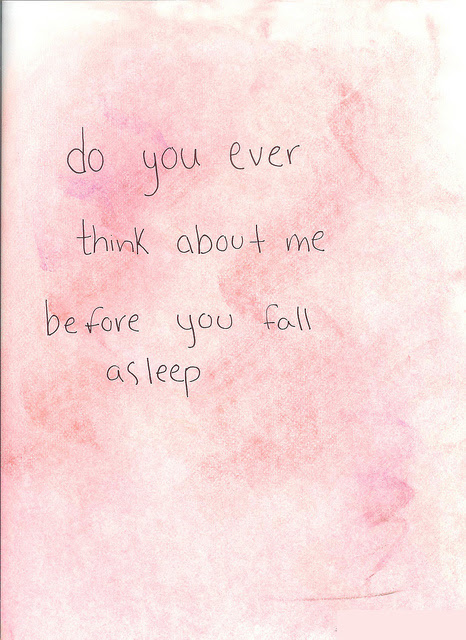 do you ever
think about me
before you fall
asleep